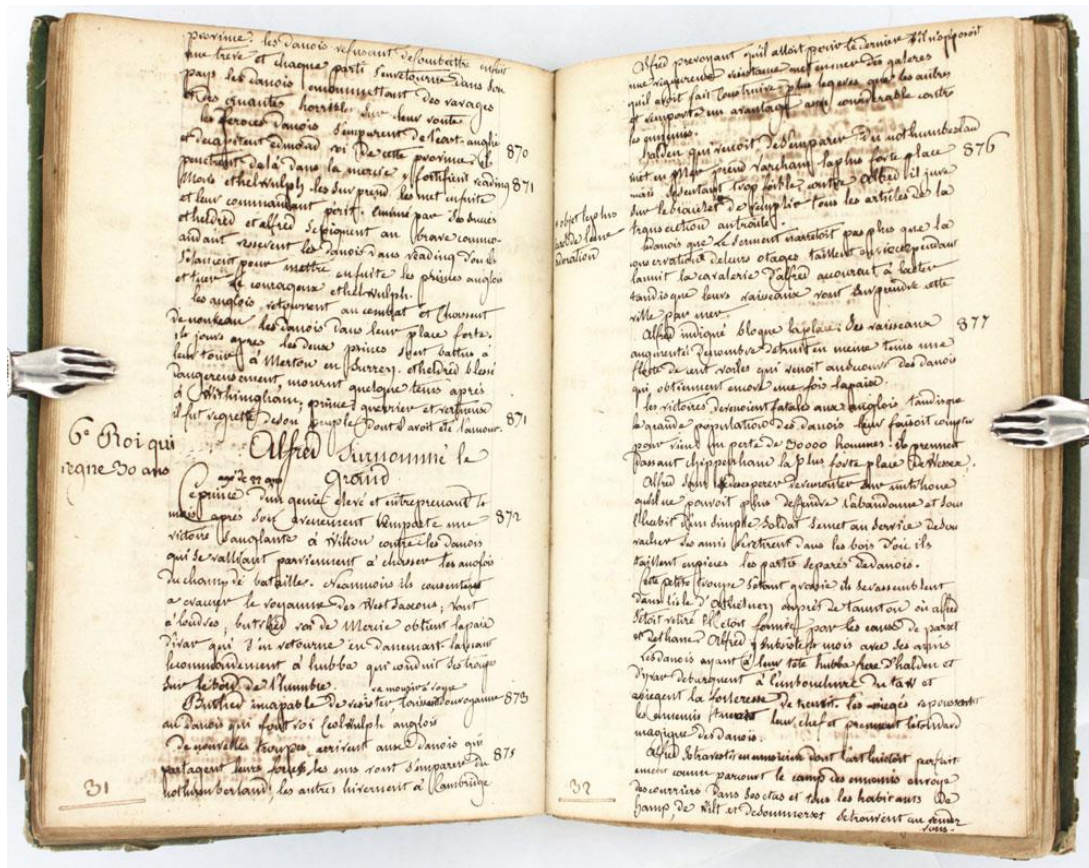 province. les danois refusant de combattre enfuit
une treve et chaque parti s'enretourne dans son
pays les danois commettant des ravages
et des cruautés horribles sur leur route
les feroces danois s'emparent de l'east-anglie 870
et decapitent edmond roi de cette province et
penetrent de là dans la mercie, fortifient reading 871
Mais ethelwulph les surprend les met enfuite
et leur commandant périt. animé par des succès
etheldred et alfred se joignent au brave comman-
andant resserrent les danois dans reading d'ou ils
s'élancent pour mettre enfuite les princes anglois
et tuer le courageux ethelwulph.
les anglois retournent au combat et chassent
de nouveau les danois dans leur place forte.
jours apres les deux princes sont battus a
leur tour à Merton en Surrey. etheldred blessé
dangereusement, mourut quelque tems après
à Withingham, prince guerrier et vertueux
il fut regretté de son peuple dont il avoit été l'amour. 871
6e Roi qui
regne 30 ans
Alfred surnommé le
Grand
agé de 22 ans
Ce prince d'un genie elevé et entreprenant 1
mois après son avenement remporte une 872
victoire sanglante à Wilton contre les danois
qui se ralliant parviennent à chasser les anglois
du champ de bataille. Neanmoins ils consentent
a evacuer le royaume des West Saxons; vont
à londres; buthred roi de Mercie obtient la paix
d'ivar qui s'en retourne en danemarc laissant
le commandement à hubba qui conduit ses troupes
sur le bord de l'humbre.
va mourir à rome
Buthred incapable de resister laisse son royaume 873
au danois qui font roi Ceolwulph anglois
de nouvelles troupes arrivent aux danois qui
partagent leurs forces, les uns vont s'emparer du 875
nothumberland, les autres hivernent à Cambridge
31
Alfred prevoyant qu'il alloit perir le dernier s'il n'opposoit
une vigoureuse resistance met en mer des galeres
qu'il avoit fait construire plus legeres que les autres
et remporte un avantage assez considerable contre
les ennemis.
halden qui venoit de s'emparer du nothumberland
met en Mer prend Varcham la plus forte place 876
mais se sentant trop foible contre Alfred il jure
sur le bracelet de remplir tous les articles de la
transaction autraité.
objet le plus
sacré de leur
adoration
les danois que le serment n'arretoit pas plus que la
conservation de leurs otages taillent en pieces pendant
la nuit la cavalerie d'alfred accourant à Exeter
tandis que leurs vaisseaux vont surprendre cette
ville par mer.
Alfred indigné bloque la place: ses vaisseaux 877
augmentés de nombre detruit en meme tems une
flotte de cent voiles qui venoit au secours des danois
qui obtiennent encore une fois la paix.
les victoires devenoient fatales aux anglois tandis que
la grande population des danois leur faisoit compter
pour rien un perte de 30000 hommes. ils prennent
passant chippenham la plus forte place de Wessex.
Alfred sans desesperer de remonter sur un throne
qu'il ne pouvoit plus deffendre l'abandonne et sous
l'habit d'un simple soldat se met au service de son
vacher ses amis se retirent dans les bois d'où ils
taillent en pieces les partis separés de danois.
Cette petite troupe s'etant grossie ils se rassemblent
dans l'isle d'Athelney auprès de taunton où alfred
s'étoit retiré. Elle etoit formée par les eaux de parret
et de thane. Alfred y subsiste mois avec ses amis
Les danois ayant à leur tete hubba frere d'halden et
d'yvar debarquent à l'embouchure du taw et
asiegent la forteresse de kenwit. les asiegés repoussent
les ennemis tuent leur chef et prennent l'étendard
magique des danois.
Alfred se travesti en musicien dont l'art lui étoit parfait
ement connu parcourt le camp des ennemis envoye
des courriers dans ses etas et tous les habitants de
hamp, de Wilt et de Sommerset se trouvent au rendez
vous.
32